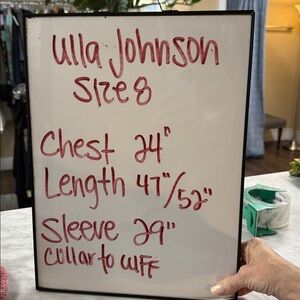 Ulla Johnson
Size 8
Chest 24"
Length 47"/52"
Sleeve 29"
Collar to cuff